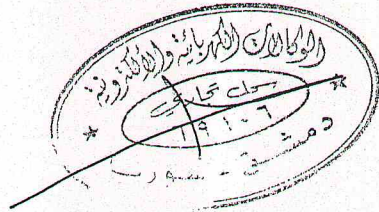 الوكالات الكهربائية والالكترونية
سجل تجاري
١٩١٠٦
دمشق - سوريا